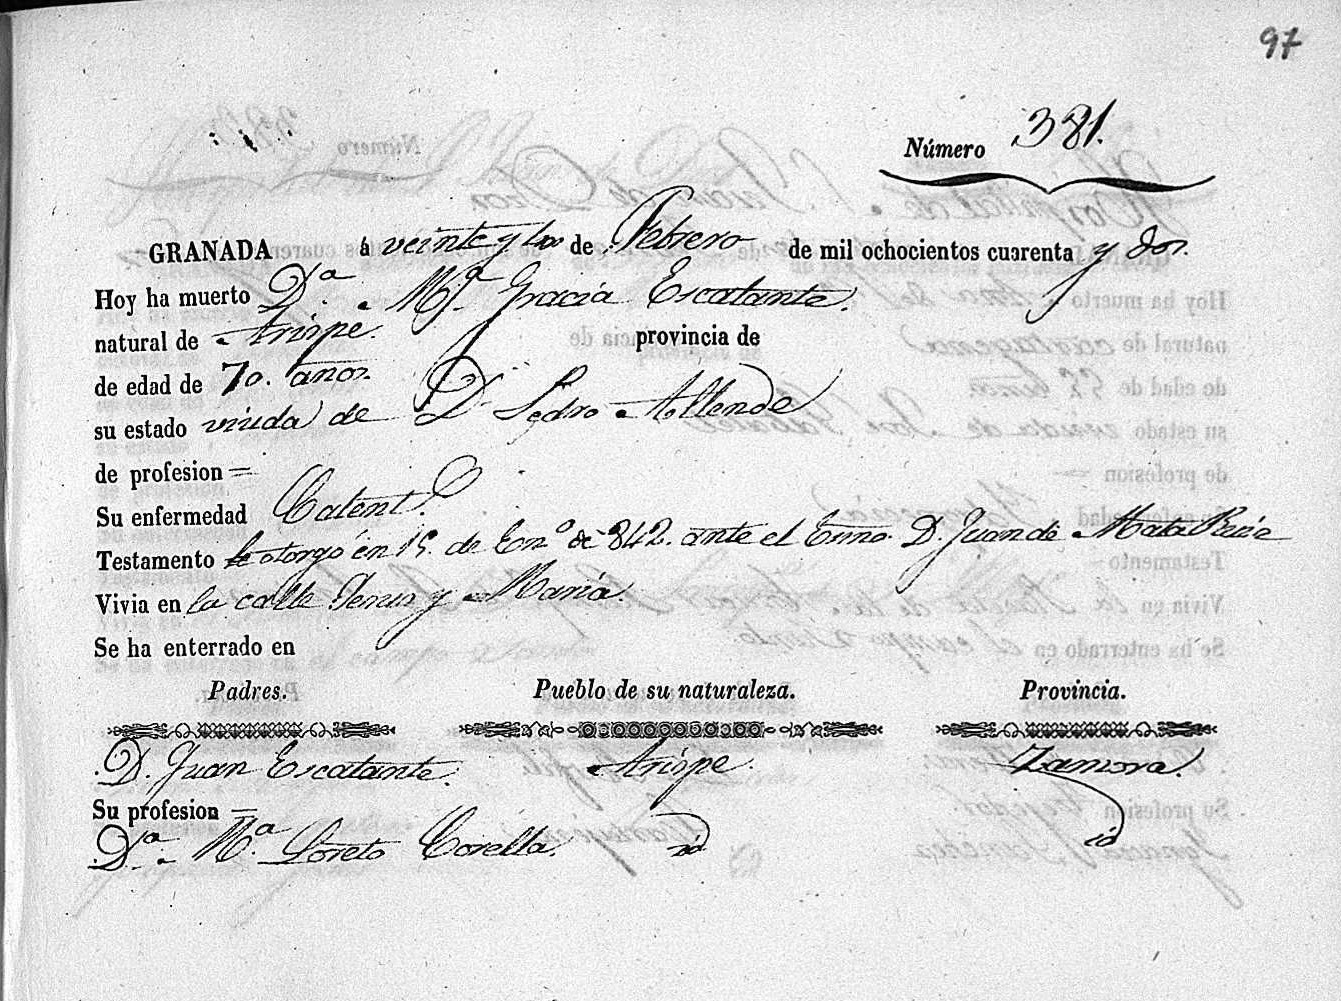 97
Número 381.
GRANADA á veinte y dos de Febrero de mil ochocientos cuarenta y dos.
Hoy ha muerto D.ª M.ª Gracia Escalante.
natural de Arispe. provincia de
de edad de 70. años.
su estado viuda de D. Pedro Allende
de profesion =
Su enfermedad Calent.ª
Testamento le otorgó en 15. de En.º de 842. ante el Esno. D. Juan de Mata Ruiz
Vivia en la calle Jesus y Maria.
Se ha enterrado en
Padres. Pueblo de su naturaleza. Provincia.
D. Juan Escalante. Arispe. Zamora.
Su profesion =
D.ª M.ª Loreto Corella. id. id